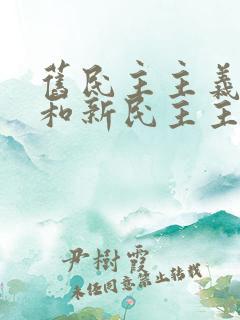 舊民主主義
和新民主主
尹樹霞
未经同意禁止转载